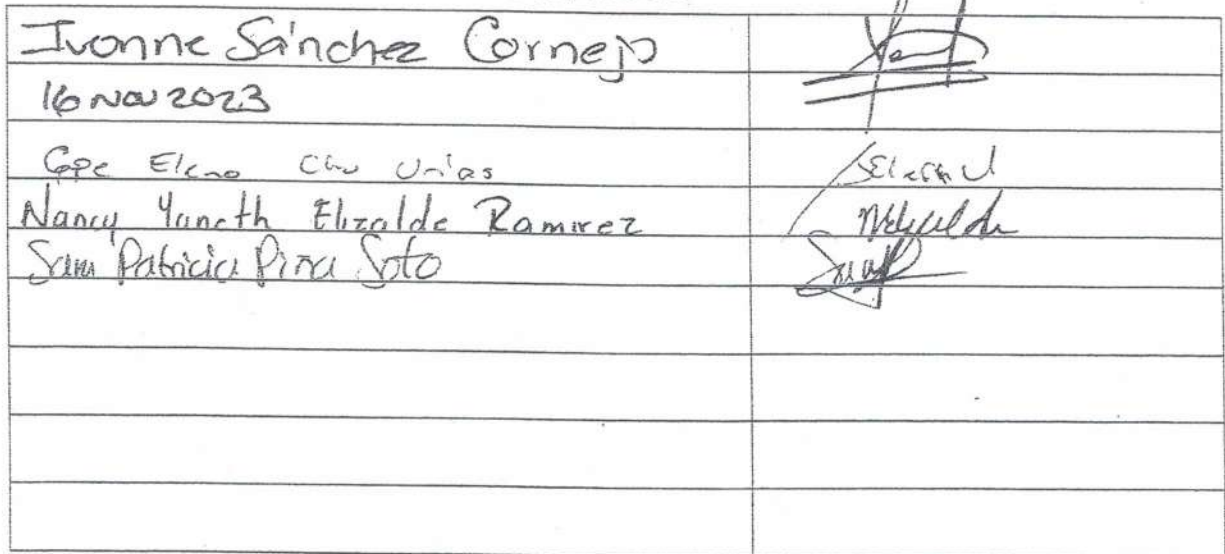 Ivonne Sánchez Cornejo
16 NOV 2023
Gpe Elena Chu Urias
Nancy Yaneth Elizalde Ramirez
Patricia Pina Soto